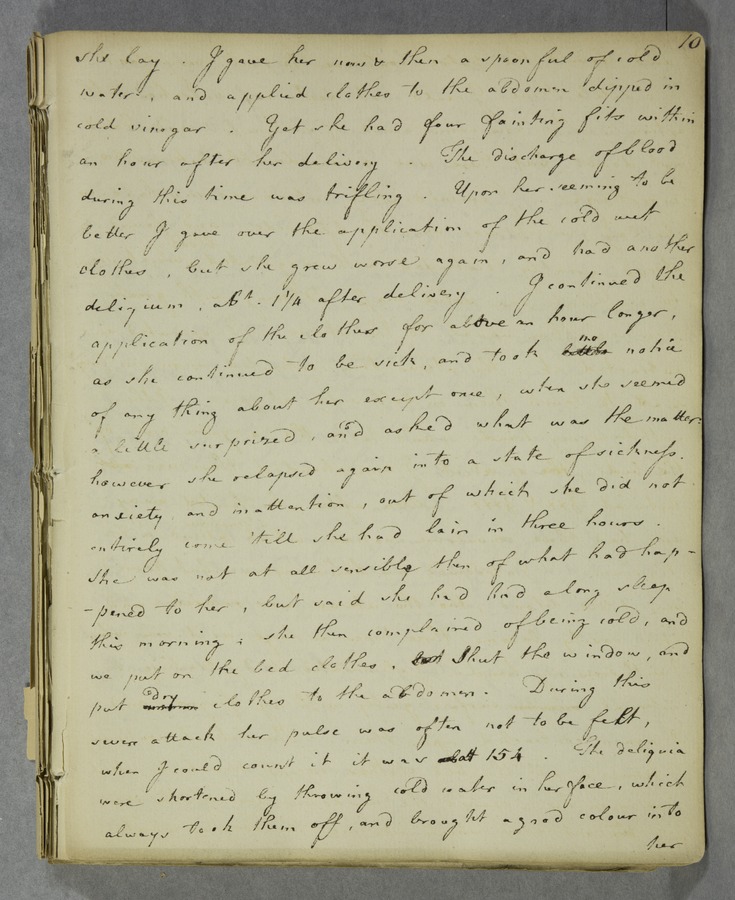 10
she lay . I gave her now & then a spoonful of cold
water, and applied clothes to the abdomen dipped in
cold vinegar . Yet she had four fainting fits within
an hour after her delivery . The discharge of blood
during this time was trifling . Upon her seeming to be
better I gave over the application of the cold wet
clothes , but she grew worse again, and had another
deliquium , abt. 1¼ after delivery . I continued the
application of the clothes for above an hour longer,
as she continued to be sick, and took no notice
of any thing about her except once , when she seemed
a little surprized , and asked what was the matter:
however she relapsed again into a state of sickness.
anxiety and inattention , out of which she did not
entirely come 'till she had lain in three hours .
She was not at all sensible then of what had hap-
-pened to her , but said she had had a long sleep
this morning ; she then complained of being cold, and
we put on the bed clothes , shut the window, and
put dry clothes to the abdomen . During this
severe attack her pulse was often not to be felt ,
when I could count it it was 154 . The deliquia
were shortened by throwing cold water in her face , which
always took them off , and brought a good colour into
her